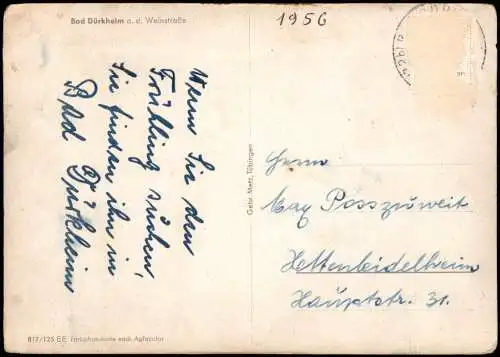 Bad Dürkheim a. d. Weinstraße
1956
Wenn Sie den
Frühling suchen,
Sie finden ihn in
Bad Dürkheim
Gebr. Metz, Tübingen
Herrn
Max Posszuweit
Hettenleidelheim
Hauptstr. 31.
817/125 EE Farbphotokarte nach Agfacolor